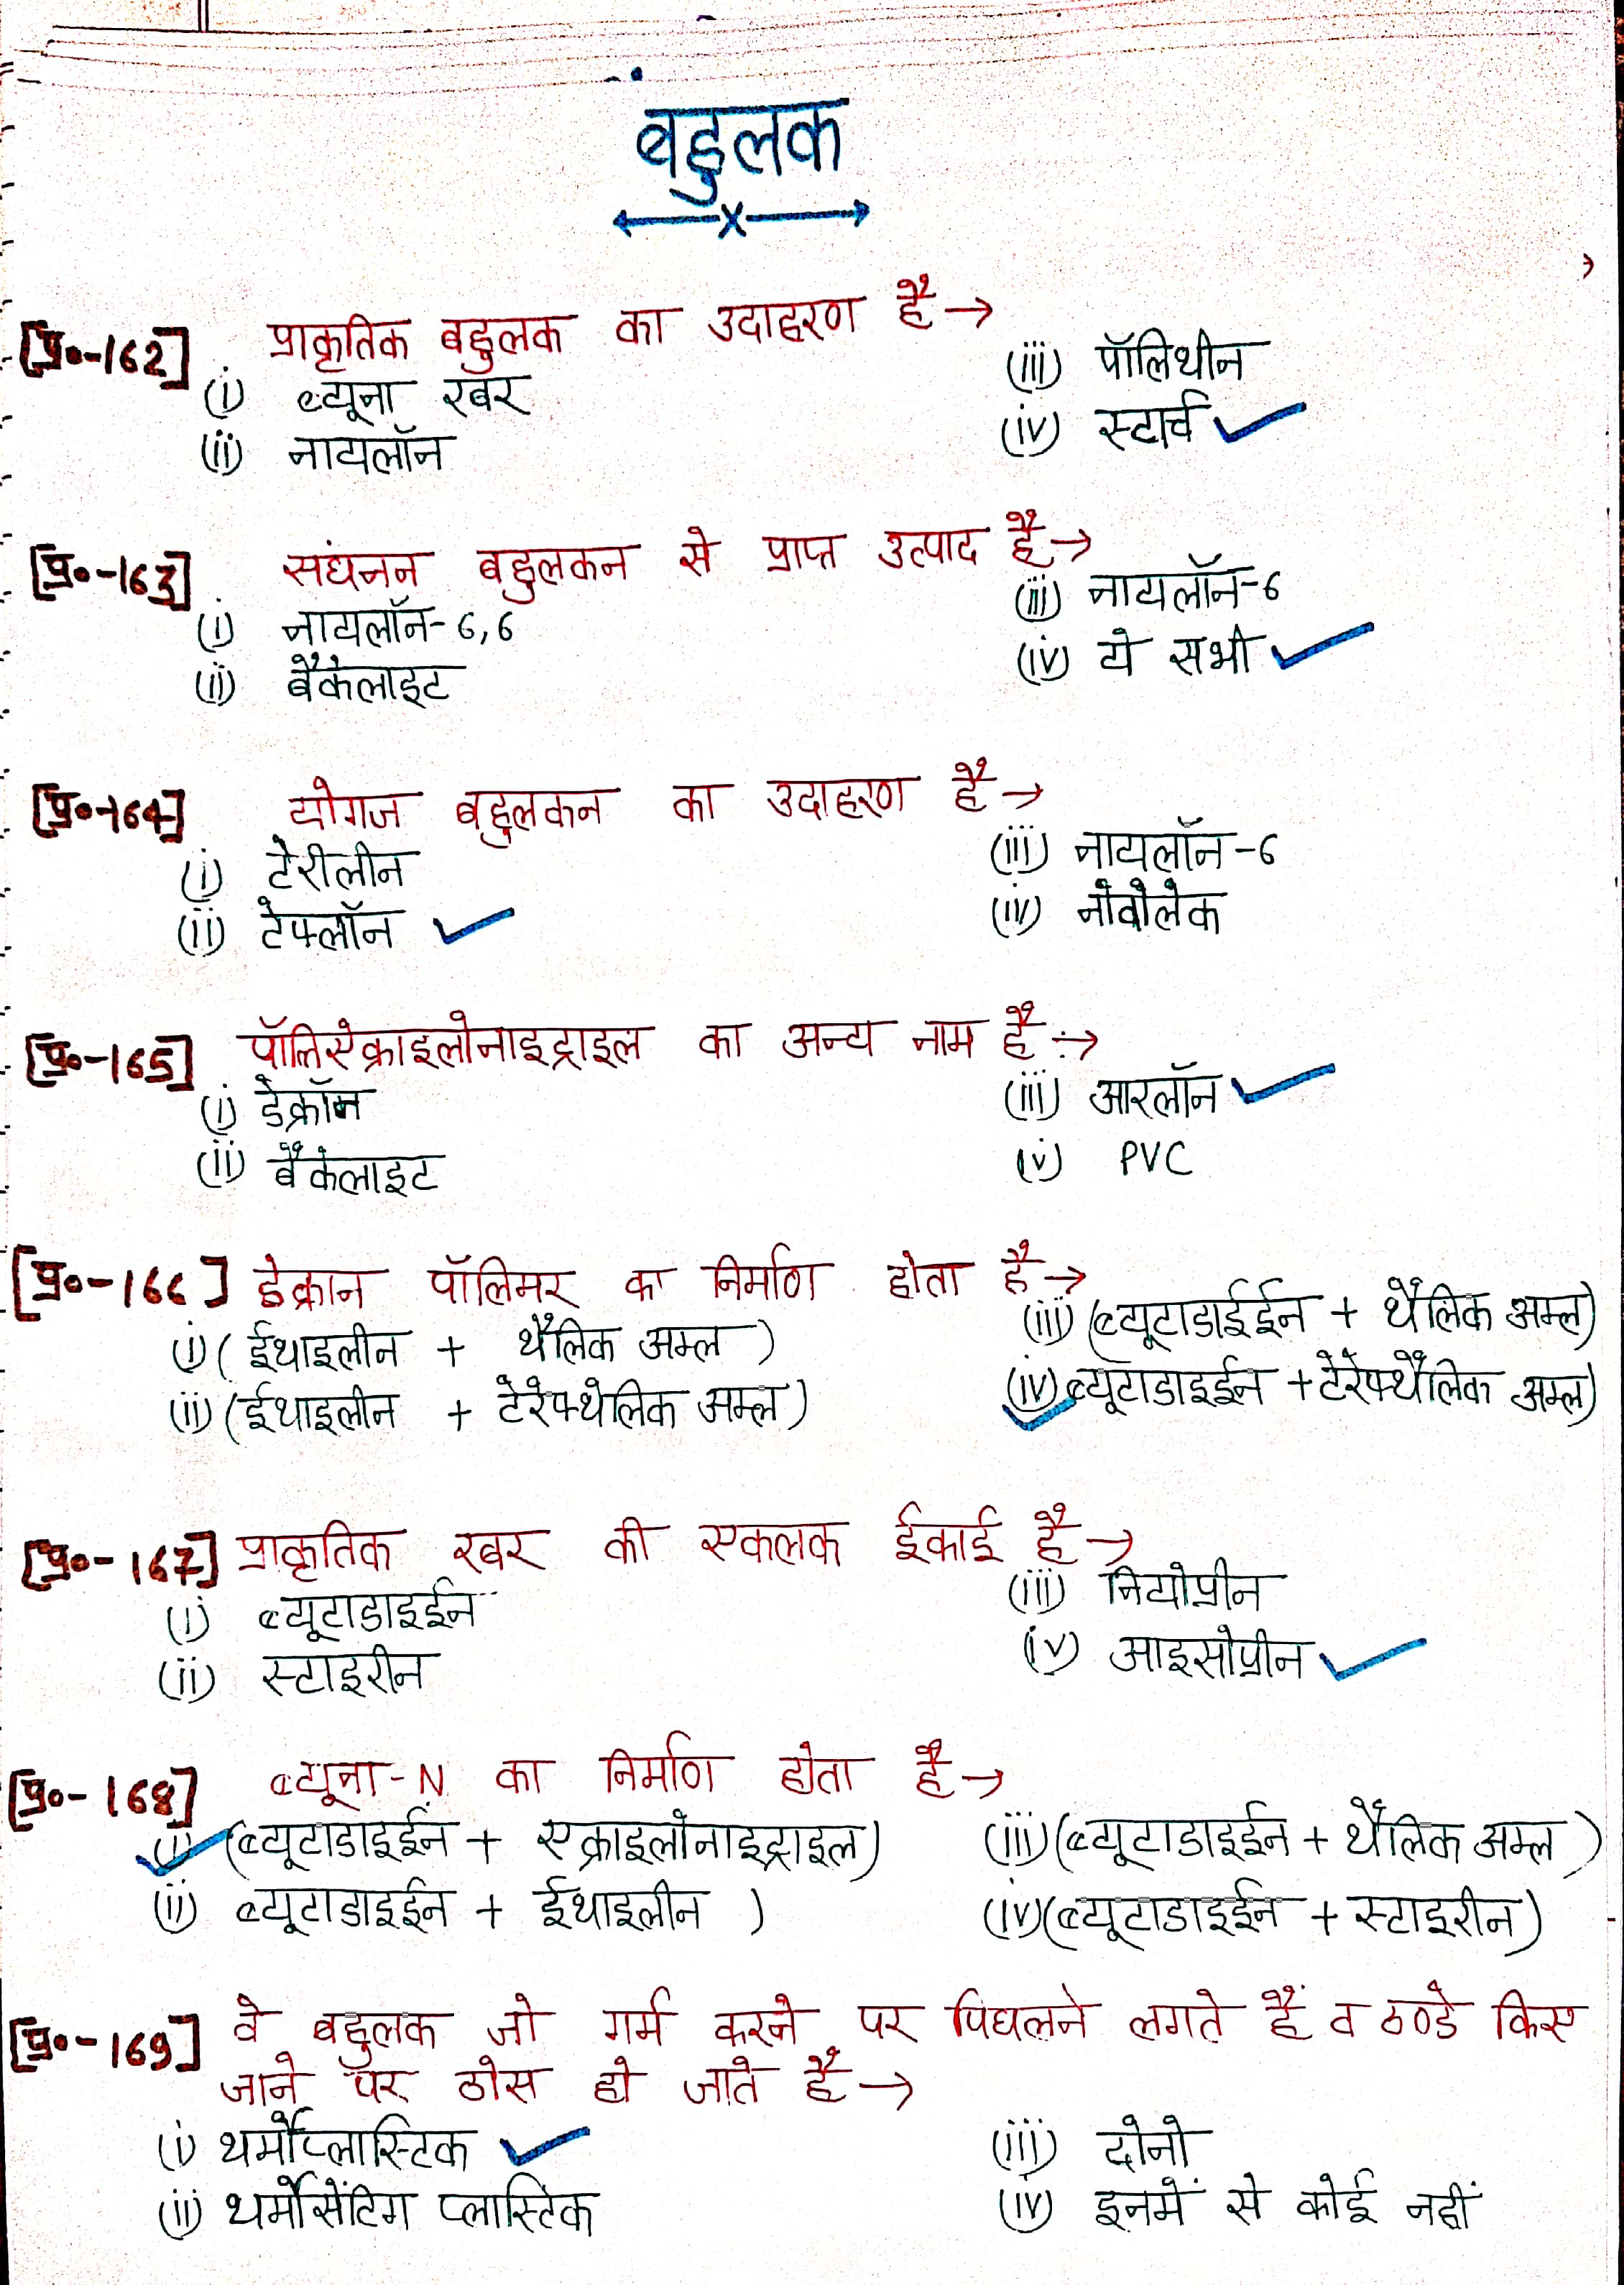 बहुलक
[प्र०-162] प्राकृतिक बहुलक का उदाहरण है →
(i) ब्यूना रबर (iii) पॉलिथीन
(ii) नायलॉन (iv) स्टार्च ✓
[प्र०-163] संघनन बहुलकन से प्राप्त उत्पाद है →
(i) नायलॉन-6,6 (iii) नायलॉन-6
(ii) बैकेलाइट (iv) ये सभी ✓
[प्र०-164] योगज बहुलकन का उदाहरण है →
(i) टेरीलीन (iii) नायलॉन-6
(ii) टेफ्लॉन ✓ (iv) नोवोलेक
[प्र०-165] पॉलिऐक्राइलोनाइट्राइल का अन्य नाम है :→
(i) डेक्रॉन (iii) आरलॉन ✓
(ii) बैकेलाइट (iv) PVC
[प्र०-166] डेक्रान पॉलिमर का निर्माण होता है →
(i) (ईथाइलीन + थैलिक अम्ल) (iii) (ब्यूटाडाईईन + थैलिक अम्ल)
(ii) (ईथाइलीन + टेरेफ्थेलिक अम्ल) (iv) ब्यूटाडाइईन + टेरेफ्थैलिक अम्ल) ✓
[प्र०-167] प्राकृतिक रबर की एकलक ईकाई है →
(i) ब्यूटाडाइईन (iii) नियोप्रीन
(ii) स्टाइरीन (iv) आइसोप्रीन ✓
[प्र०-168] ब्यूना-N का निर्माण होता है →
(i) ✓ (ब्यूटाडाइईन + एक्राइलोनाइट्राइल) (iii) (ब्यूटाडाइईन + थैलिक अम्ल)
(ii) ब्यूटाडाइईन + ईथाइलीन ) (iv) (ब्यूटाडाइईन + स्टाइरीन)
[प्र०-169] वे बहुलक जो गर्म करने पर पिघलने लगते हैं व ठण्डे किए
जाने पर ठोस हो जाते है →
(i) थर्मोप्लास्टिक ✓ (iii) दोनो
(ii) थर्मोसेंटिग प्लास्टिक (iv) इनमें से कोई नहीं